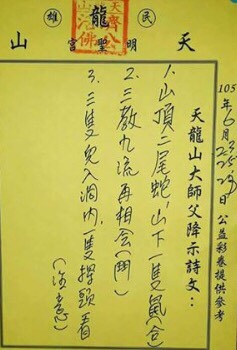 雄 龍 民
山 宮聖明 天
濟公
活佛
105年6月23.25.29日 公益彩券提供參考
天龍山大師父降示詩文：
1、山頂二尾蛇，山下一隻鼠(合)
2、三教九流再相会(鬥)
3、三隻兔入洞內，一隻探頭看
(注意)